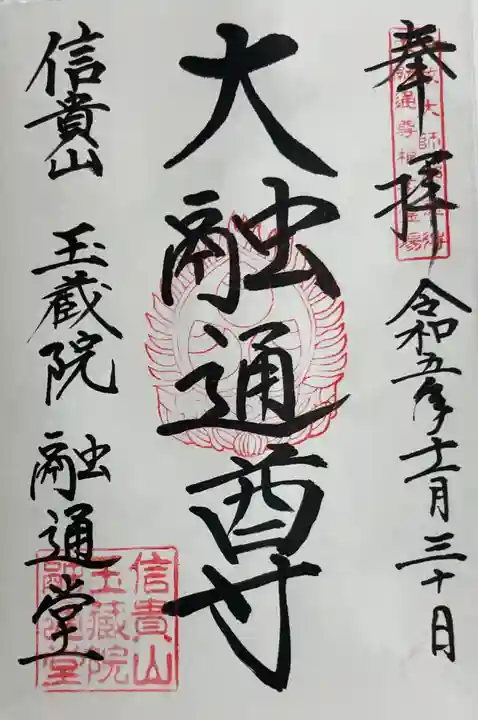 奉拝
令和五年十二月三十日
大融通尊
信貴山 玉蔵院 融通堂
信貴山
玉蔵院
融通堂